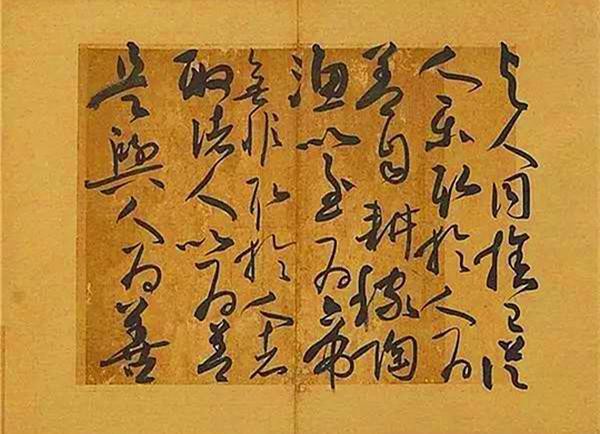 与人同捨己從
人樂取於人為
善自耕稼陶
漁以至為帝
無非取於人者
取諸人以為善
是與人為善